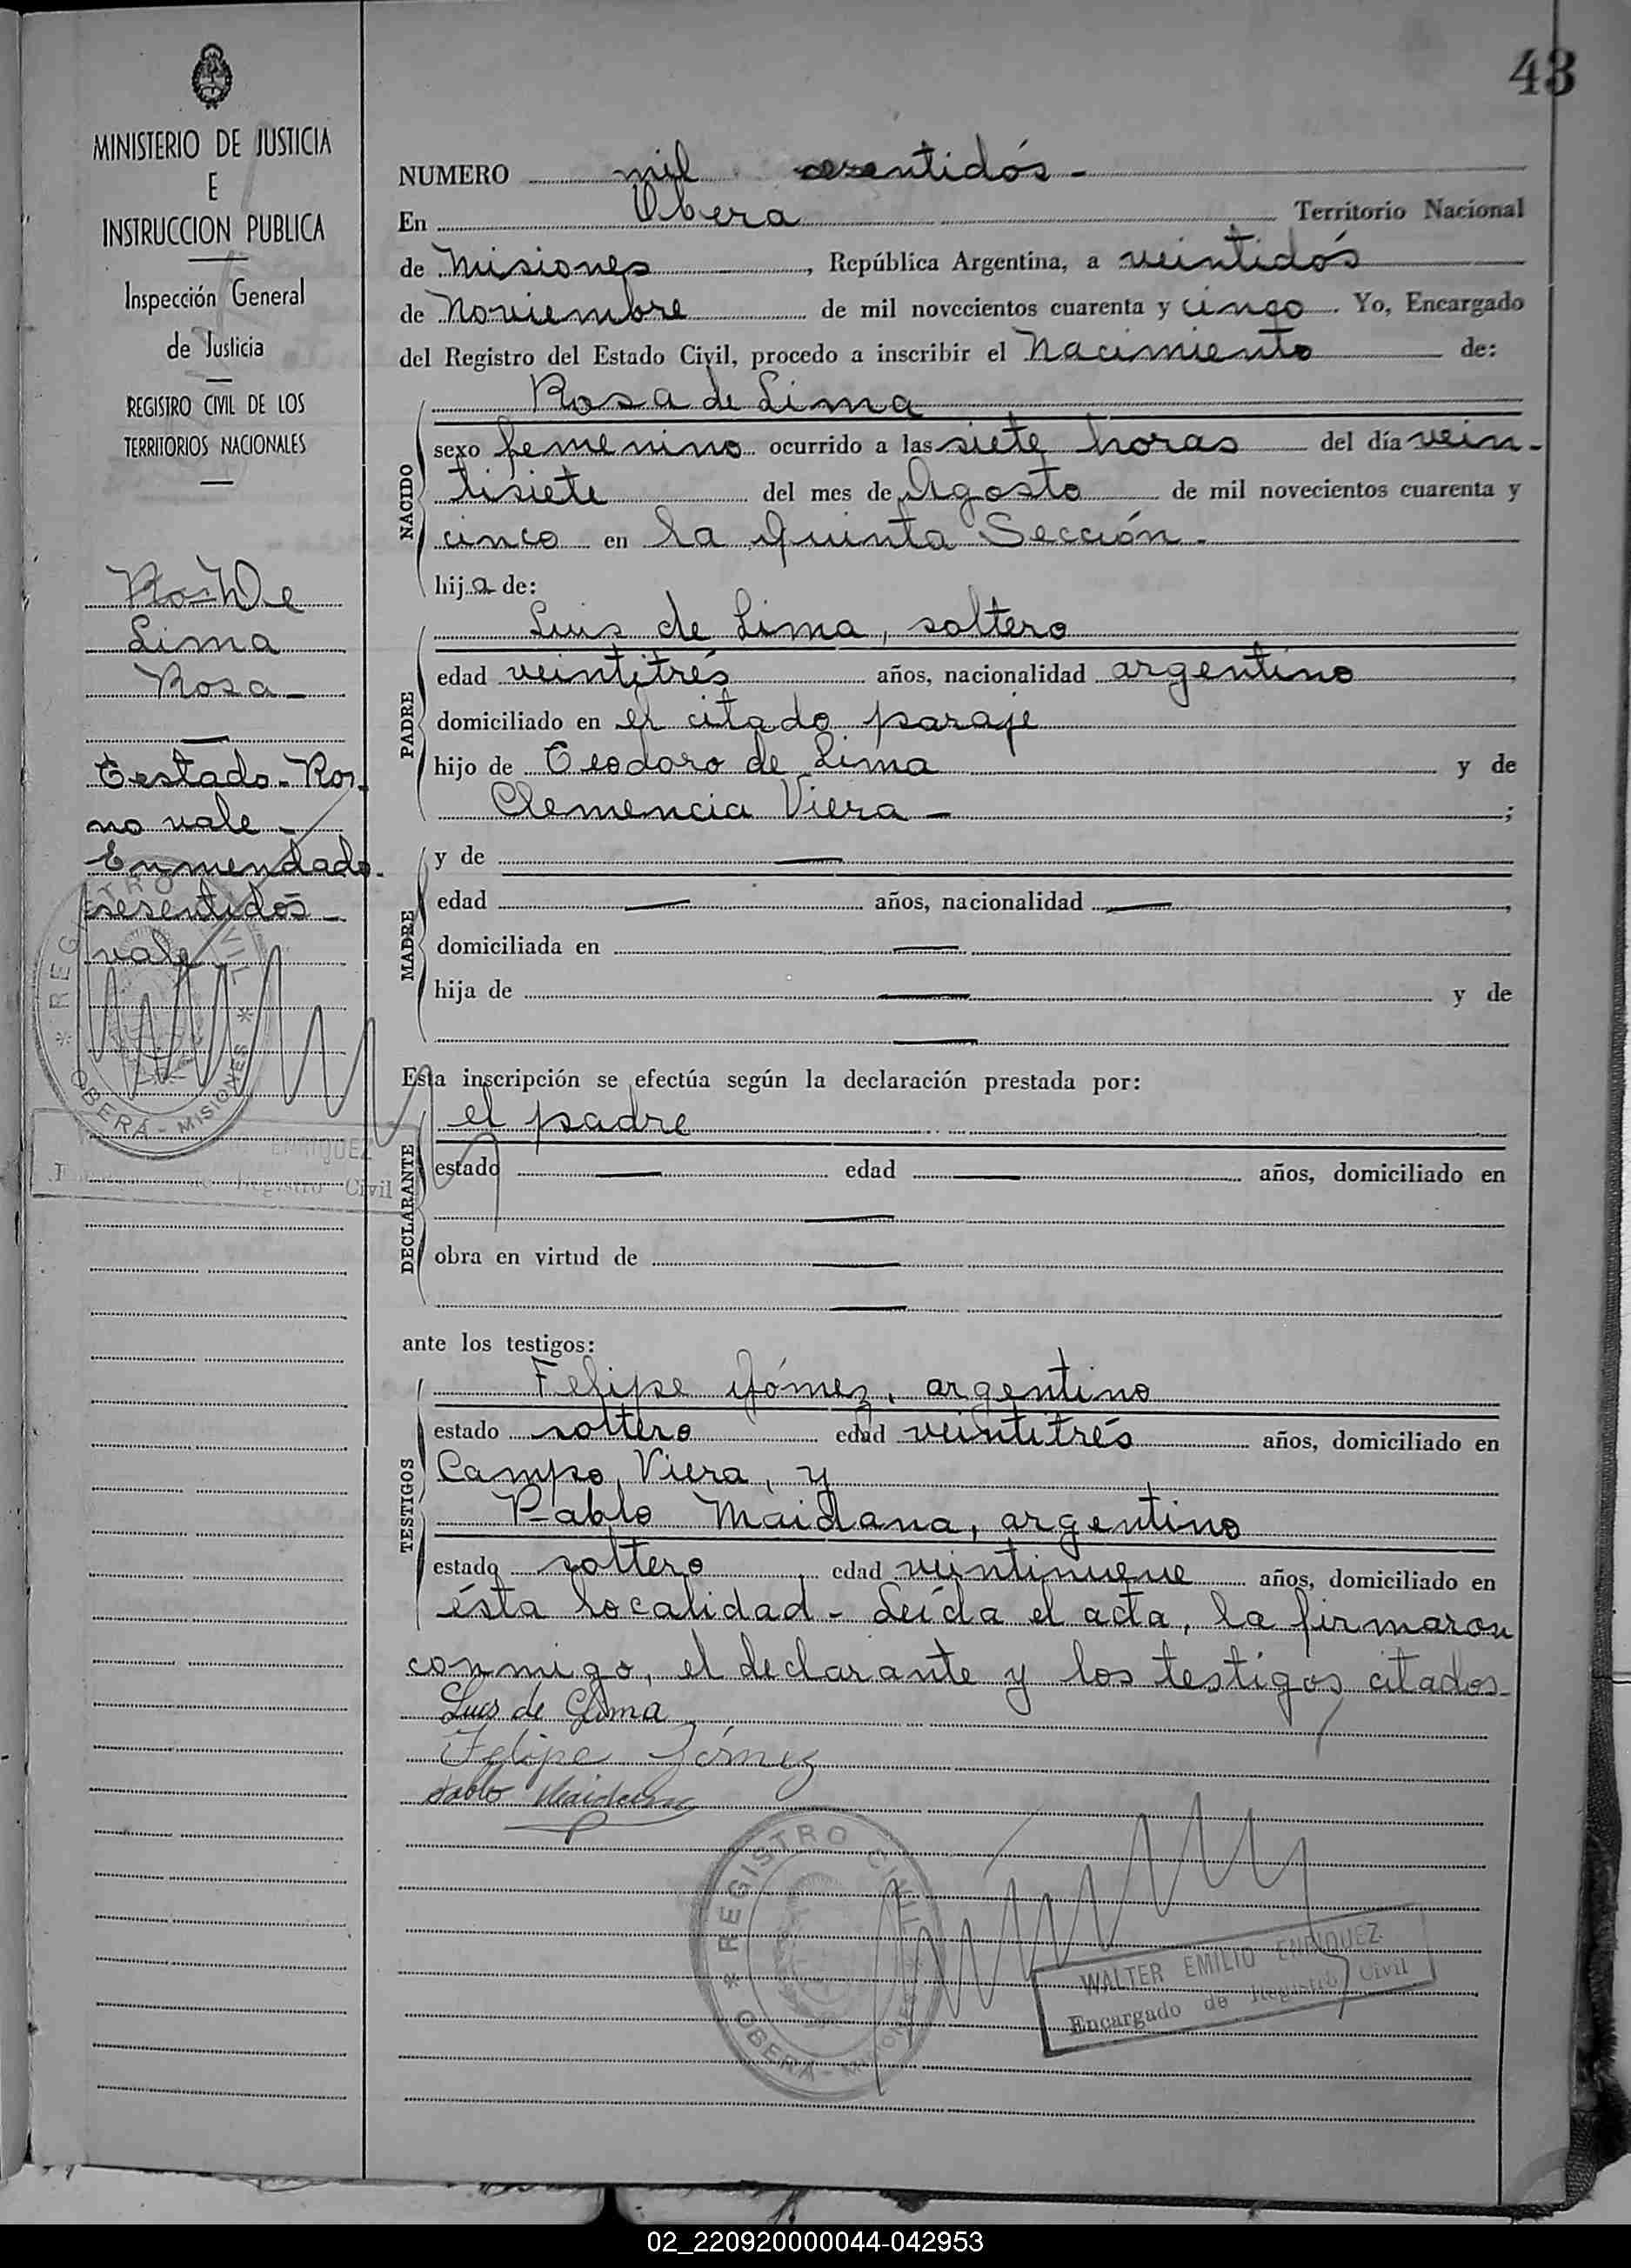 43
MINISTERIO DE JUSTICIA
E
INSTRUCCION PUBLICA
Inspección General
de Justicia
REGISTRO CIVIL DE LOS
TERRITORIOS NACIONALES
De
Lima
Rosa -
Testado - Ros.
no vale -
Enmendado.
sesentidós -
vale
REGISTRO CIVIL
OBERÁ - MISIONES
ENRIQUEZ
Registro Civil
NUMERO mil sesentidós -
En Obera Territorio Nacional
de Misiones, República Argentina, a veintidós
de Noviembre de mil novecientos cuarenta y cinco. Yo, Encargado
del Registro del Estado Civil, procedo a inscribir el Nacimiento de:
Rosa de Lima
NACIDO
sexo femenino ocurrido a las siete horas del día vein-
tisiete del mes de Agosto de mil novecientos cuarenta y
cinco en la Quinta Sección -
hija de:
PADRE
Luis de Lima, soltero
edad veintitrés años, nacionalidad argentino,
domiciliado en el citado paraje
hijo de Teodoro de Lima y de
Clemencia Viera - ;
MADRE
y de —
edad — años, nacionalidad —,
domiciliada en —
hija de — y de
—
Esta inscripción se efectúa según la declaración prestada por:
DECLARANTE
el padre
estado — edad — años, domiciliado en
—
obra en virtud de —
—
ante los testigos:
TESTIGOS
Felipe Gómez, argentino
estado soltero edad veintitrés años, domiciliado en
Campo Viera, y
Pablo Maidana, argentino
estado soltero edad veintinueve años, domiciliado en
ésta localidad - Leída el acta, la firmaron
conmigo, el declarante y los testigos citados -
Luis de Lima
Felipe Gómez
Pablo Maidana
REGISTRO CIVIL
OBERÁ - MISIONES
WALTER EMILIO ENRIQUEZ
Encargado de Registro Civil
02_220920000044-042953